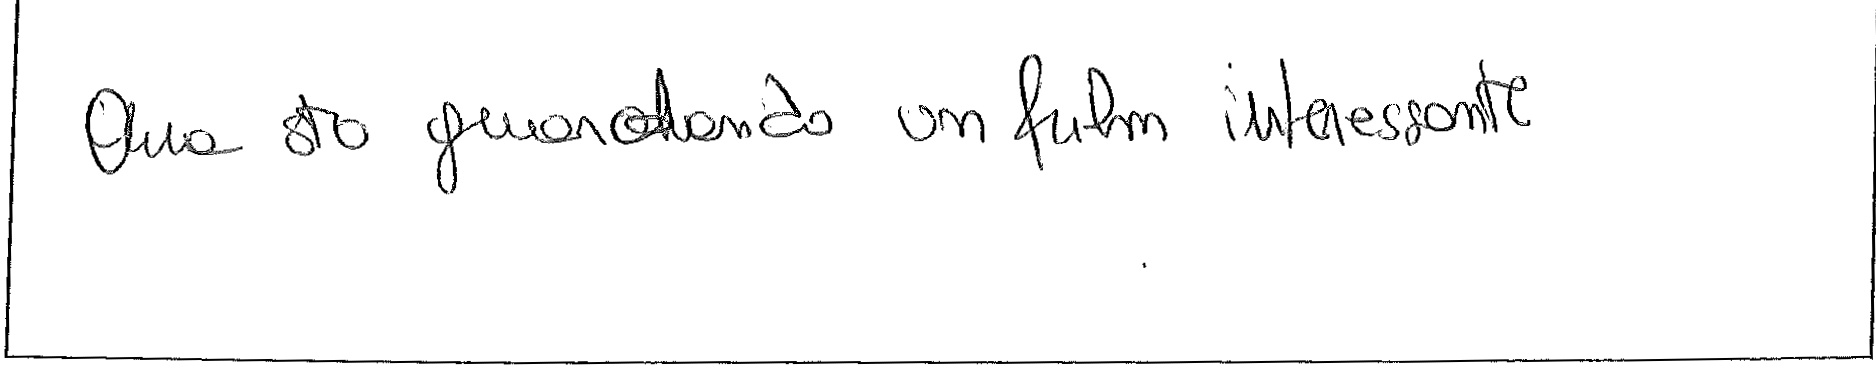 Qua sto guardando un fulm interessante